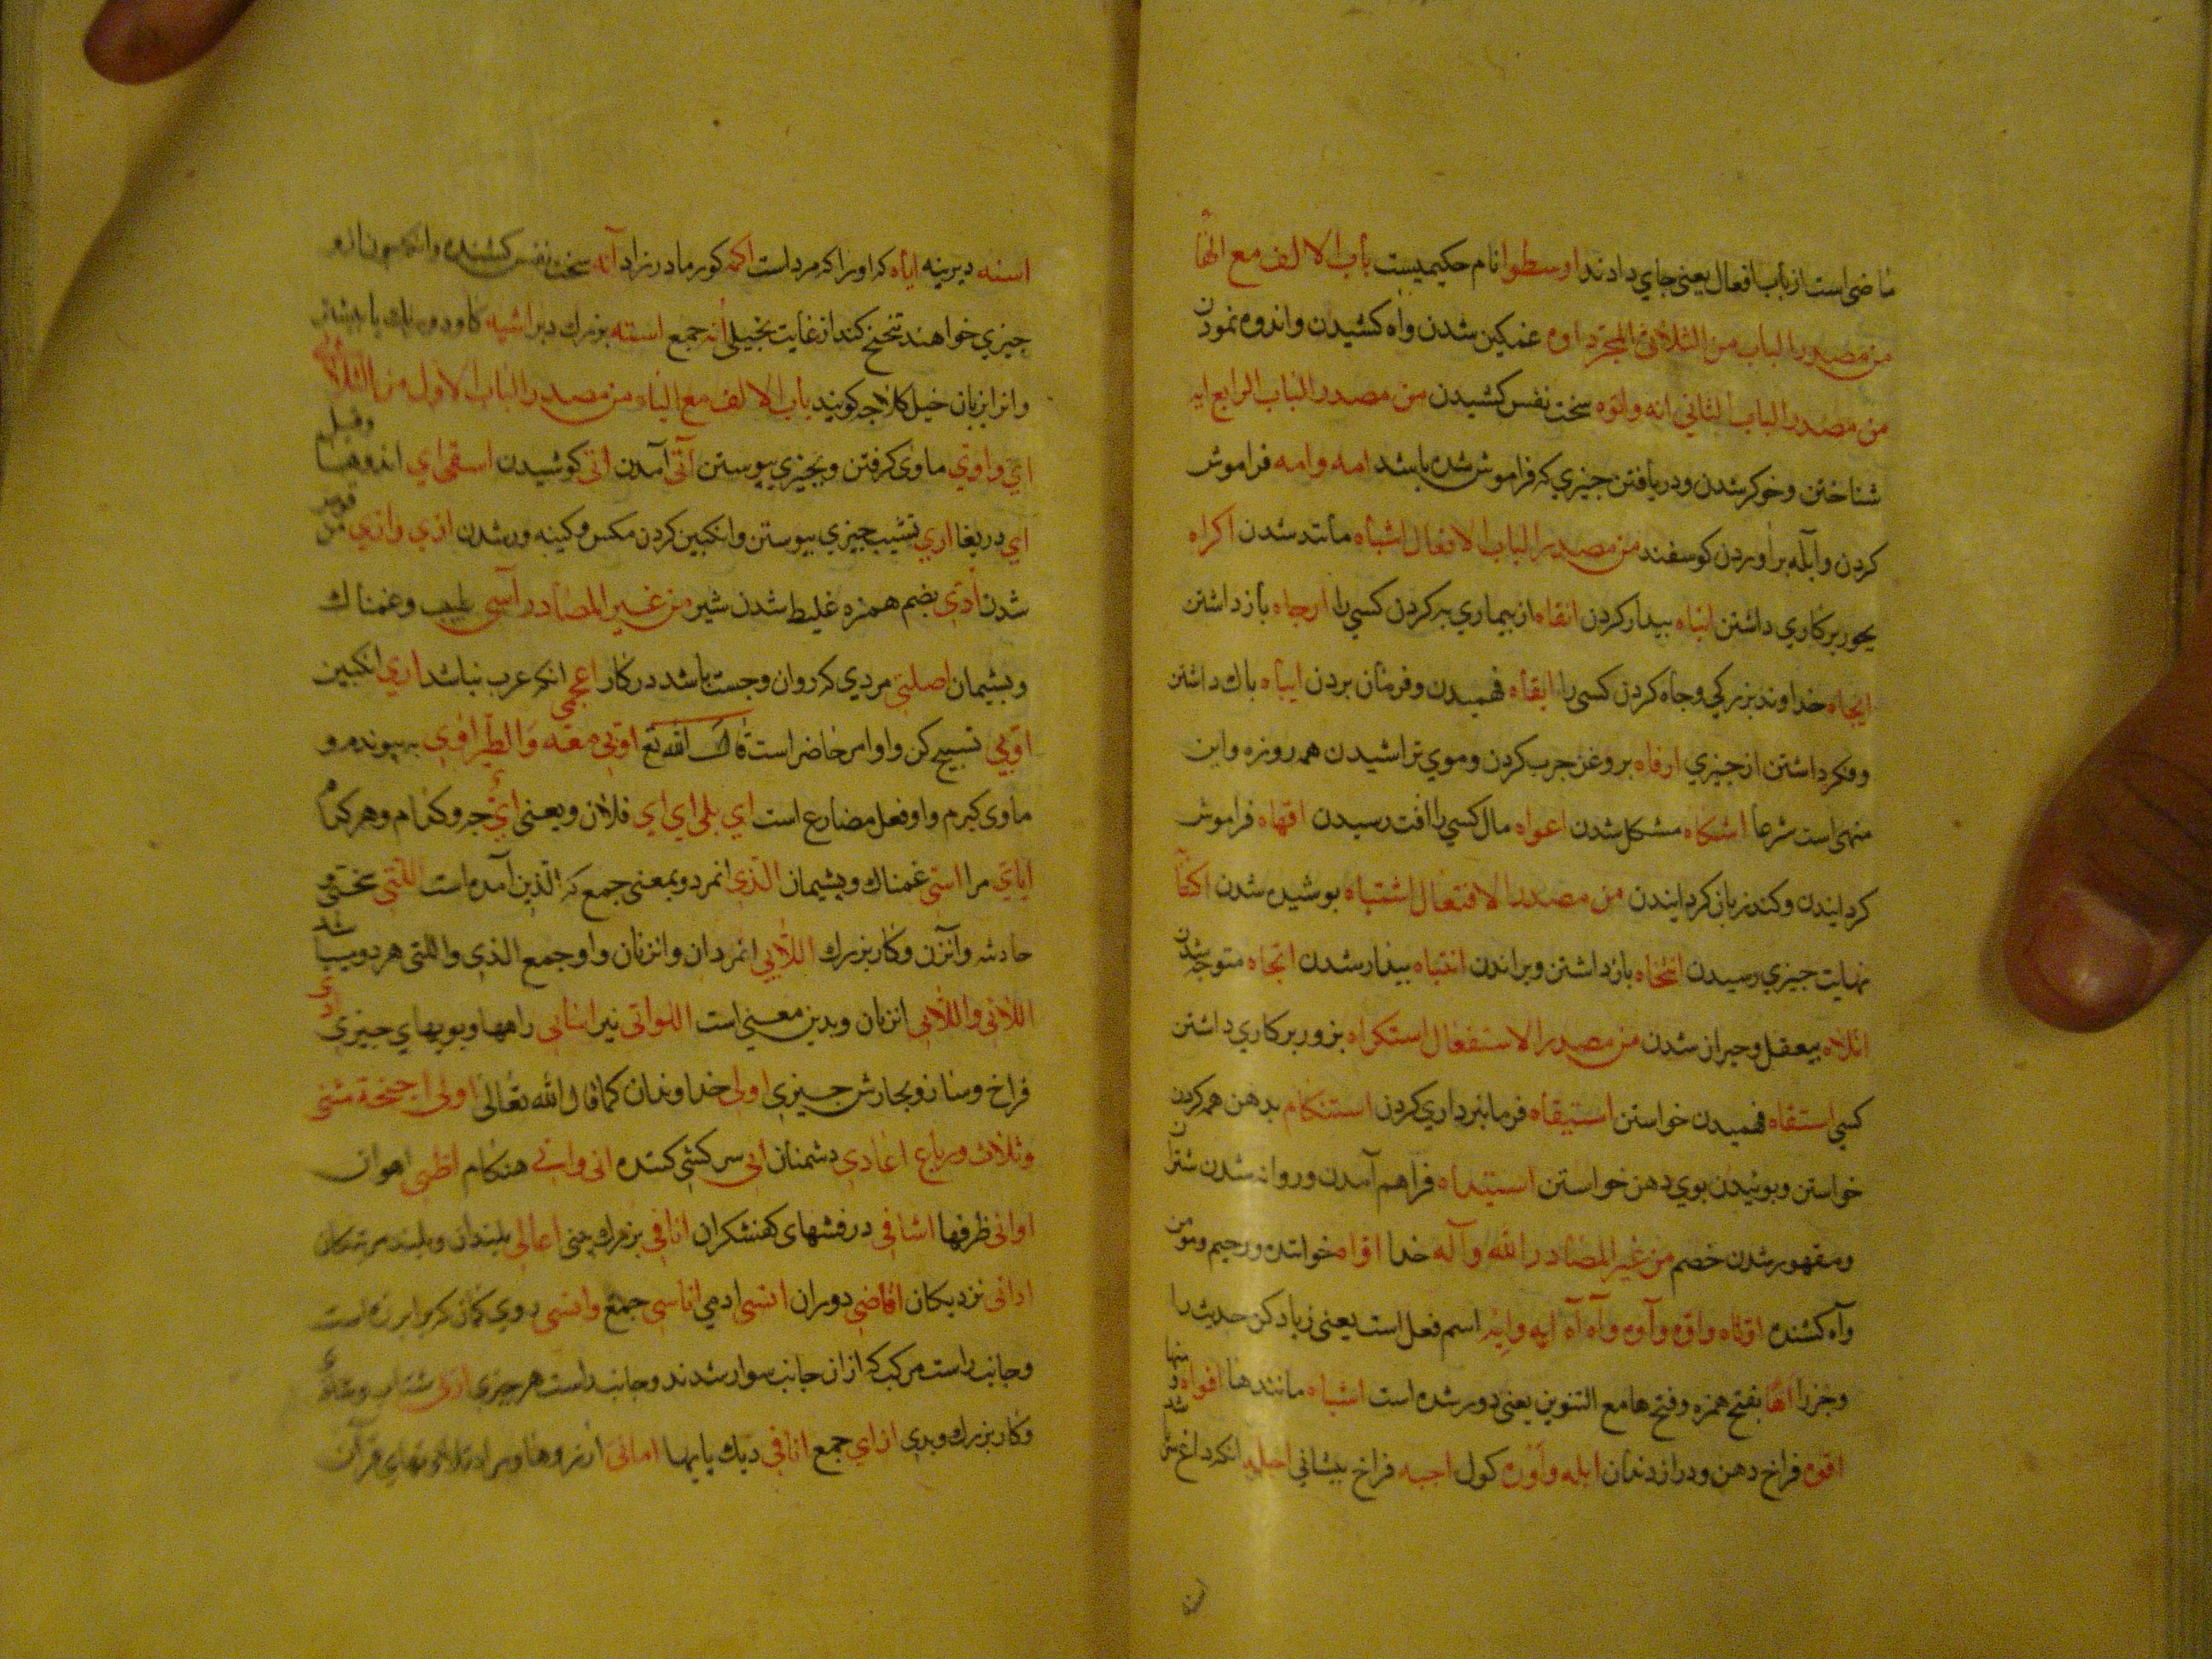 ماضی است از باب افعال یعنی جای دادند اوسطوا نام حکیمیست باب الالف مع الها
من مصدر الباب من الثلاثی المجرد اوه غمکین شدن واه کشیدن واندوه نمودن
من مصدر الباب الثانی انه وانوه سخت نفس کشیدن من مصدر الباب الرابع ایه
شناختن وخوکر شدن ودریافتن جیزی که فراموش شده باشد امه وامه فراموش
کردن وآبله براوردن کوسفند من مصدر الباب الافعال اشباه مانند شدن اکراه
بجور برکاری داشتن انباه بیدار کردن انقاه از بیماری به کردن کسی را ارجاه بازداشتن
ایجاه خداوند بزرکی وجاه کردن کسی را ایقاه فهمیدن وفرمان بردن ایباه باک داشتن
وفکر داشتن از جیزی ارفاه بروغن جرب کردن وموی تراشیدن همه روزه واین
منهی است شرعا اشکاه مشکل شدن اعواه مال کسی را افت رسیدن افهاه فراموش
کردانیدن وکند زبان کردانیدن من مصدر الافتعال اشتباه بوشیده شدن اکتاه
نهایت جیزی رسیدن انتجاه بازداشتن وبراندن انتباه بیدار شدن اتجاه متوجه شدن
ائتلاه بیعقل وحیران شدن من مصدر الاستفعال استکراه بزور برکاری داشتن
کسی استفقاه فهمیدن خواستن استیقاه فرمانبرداری کردن استنکاه بدهن همه کردن
خواستن وبوئیدن بوی دهن خواستن استیداه فراهم آمدن وروانه شدن شتران
ومقهور شدن خصم من غیر المصادر الله وآله خدا اواه خوانند ورحیم ومومن
وآه کشنده اوتاه واوه وآوه وآه آه ایه وایه اسم فعل است یعنی زیاد کن حدیث را
وجزرا اها بفتح همزه وفتح ها مع التنوین یعنی دور شده است اشباه مانندها افواه دهنها
افوه فراخ دهن ودراز دندان ابله واوره کول اجبه فراخ بیشانی اجله انکه داغ
اسنه دیرینه ایاه که اورا که مرد است اکمه کور مادرزاد آنه سخت نفس کشنده
جیزی خواهند تنحنح کند از غایت بخیلی انه جمع استه بزرک دبر اشیه کاو
وانرا بزبان خیل کلاجه کویند باب الالف مع الیاء من مصدر الباب الاول من الثلاثی
ای واوی ماوی کرفتن وبجیزی پیوستن آتی آمدن اتی کوشیدن اسفی ای اندوها وقیل
ای دریغا اری نشیب جیزی بیوستن وانکبین کردن مکس وکینه ور شدن اذی واذی
شدن ادی بضم همزه غلیظ شدن شیر من غیر المصادر آسی طبیب وغمناک
وبشیمان اصلتی مردی که روان وجست باشد در کار اعجمی انکه عرب نباشد اری انکبین
اوبی تسبیح کن واو امر حاضر است قال الله تع اوبی معه والطیر اوی بپیوندم و
ماوی کیرم واو فعل مضارع است ای بلی ای ای فلان وبعنی ای جر وکدام وهر کدام
ایای مرا اسی غمناک وبشیمان الذی انمرد وبمعنی جمع که الذین آمده است اللتی سختی و
حادثه وآنزن وکار بزرک اللایی انمردان وانزنان واو جمع الذی واللتی هر دو میباشد
اللاتی واللایی انزنان وبدین معنی است اللواتی نیز اسابی راهها وبویهای جیزی
فراخ وساز وبجارش جیزی اولی خداوندان کما قال الله تعالی اولی اجنحة مثنی
وثلاث ورباع اعادی دشمنان ابی سرکشی کننده انی وانی هنکام اظبی اهوان
اوانی ظرفها اشافی درفشهای کفشکران انافی بزرک بینی اعالی بلندان وبلند مرتبکان
ادانی نزدیکان اقاضی دوران انسی ادمی اناسی جمع وانسی روی کمان که برابر زه است
وجانب راست مرکب که از ان جانب سوار شدند وجانب راست هر جیزی
وکار بزرک وبدی ازای جمع اثافی دیک پایها امانی ارزوها ومراد